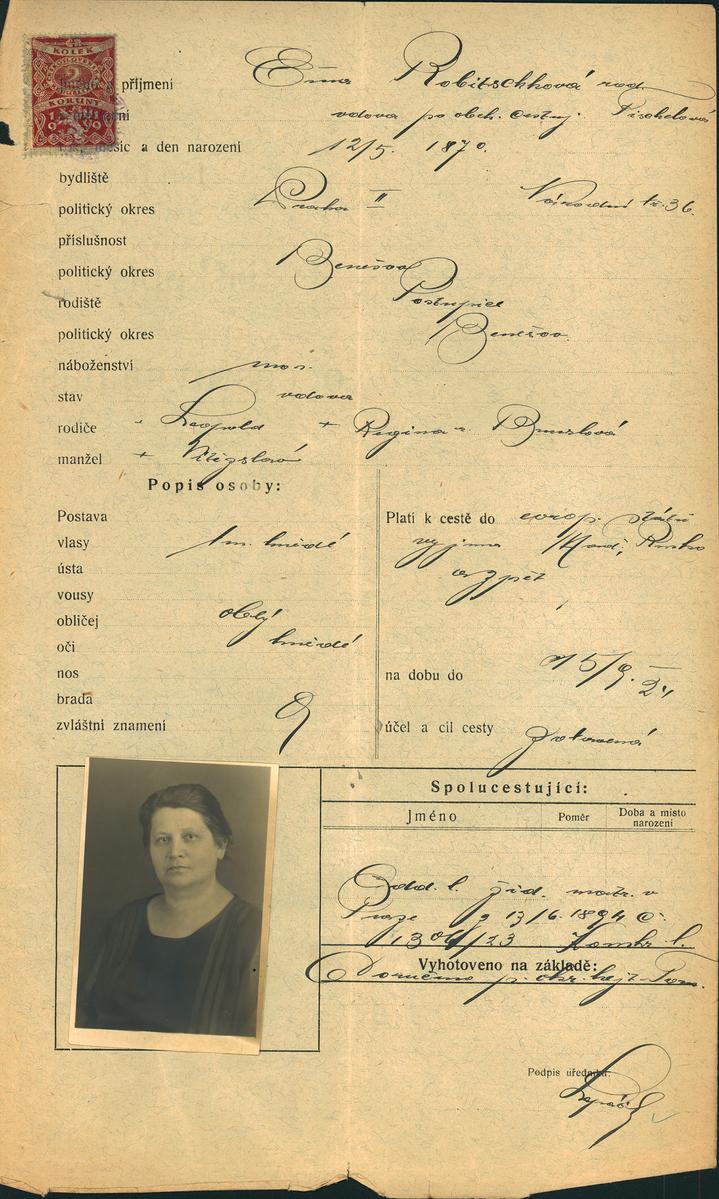 KOLEK
2
KORUNY
příjmení Ema Robitschková roz.
vdova po obch. cestuj. Fischelová
měsíc a den narození 12/5. 1870.
bydliště
politický okres Praha II Národní tř. 36.
příslušnost
politický okres Benešov
rodiště Postupice
politický okres Benešov.
náboženství mos.
stav vdova
rodiče Leopold + Regina r.
manžel +
Popis osoby:
Postava
vlasy tm. hnědé
ústa
vousy
obličej oblý
oči hnědé
nos
brada
zvláštní znamení
Platí k cestě do evrop. států
vyjma Maď., Rusko
a zpět
na dobu do 15/9. 24
účel a cíl cesty zotavená
Spolucestující:
Jméno Poměr Doba a místo narození
Odd. l. žid. matr. v
Praze 13/6. 1894 č.
1306/23 l.
Vyhotoveno na základě:
Doručeno p.
Podpis úředníka: